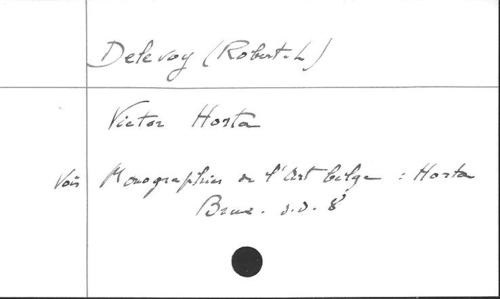 Delevoy (Robert-L)
Victor Horta
Voir Monographies de l'Art belge : Horta
Brux. s.d. 8°